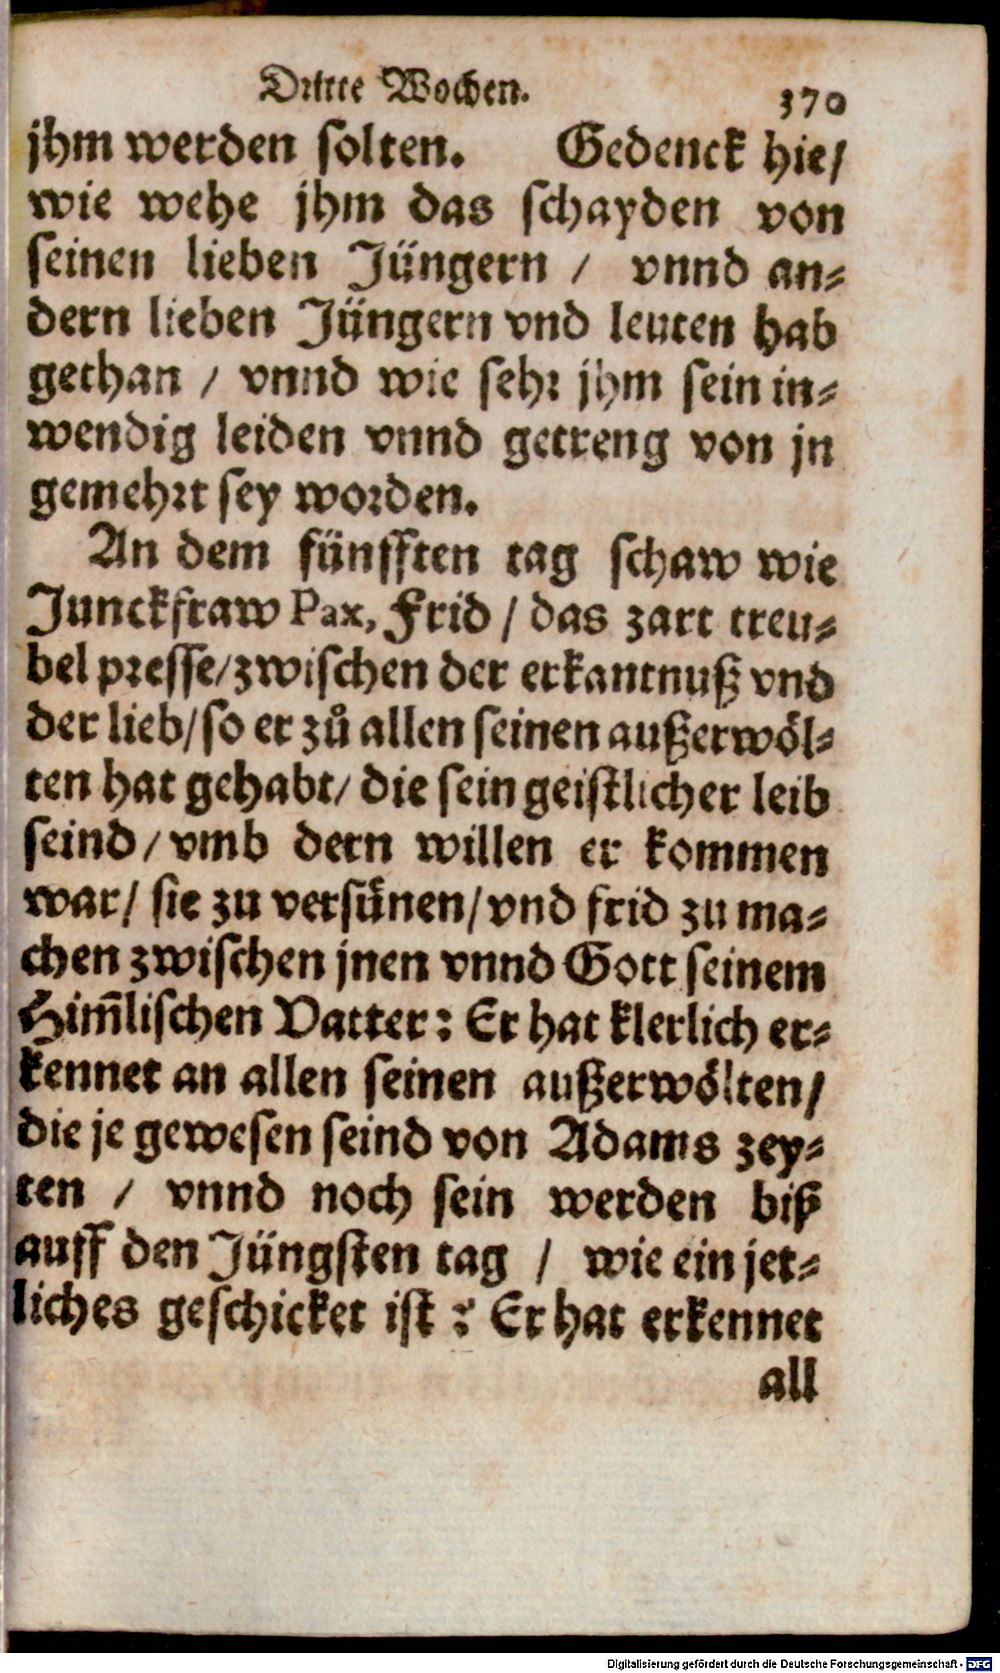 Dritte Wochen. 370
jhm werden solten. Gedenck hie/
wie wehe jhm das schayden von
seinen lieben Jüngern / vnnd an⸗
dern lieben Jüngern vnd leuten hab
gethan / vnnd wie sehr jhm sein in⸗
wendig leiden vnnd getreng von jn
gemehrt sey worden.
An dem fünfften tag schaw wie
Junckfraw Pax, Frid / das zart treu⸗
bel presse/ zwischen der erkantnuß vnd
der lieb/ so er zů allen seinen außerwöl⸗
ten hat gehabt/ die sein geistlicher leib
seind / vmb dern willen er kommen
war/ sie zu versünen/ vnd frid zu ma⸗
chen zwischen jnen vnnd Gott seinem
Him̃lischen Vatter: Er hat klerlich er⸗
kennet an allen seinen außerwölten/
die je gewesen seind von Adams zey⸗
ten / vnnd noch sein werden biß
auff den Jüngsten tag / wie ein jet⸗
liches geschicket ist: Er hat erkennet
all
Digitalisierung gefördert durch die Deutsche Forschungsgemeinschaft - DFG